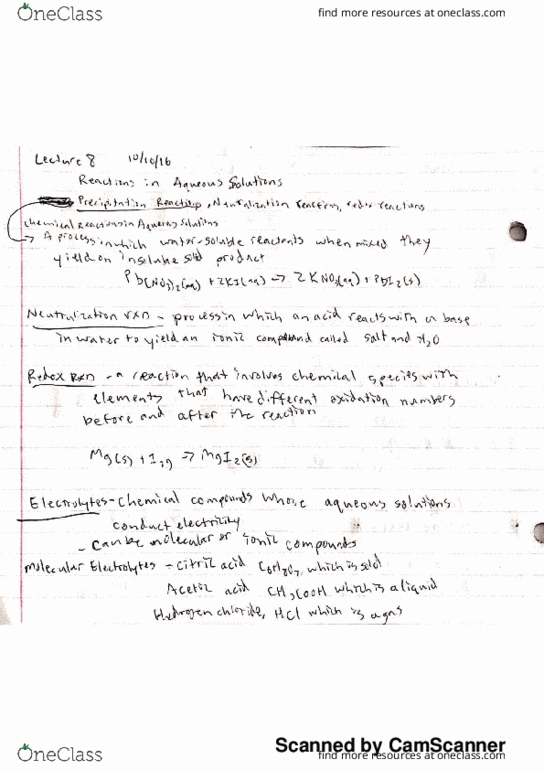 OneClass
find more resources at oneclass.com
Lecture 8 10/10/16
Reactions in Aqueous Solutions
Precipitation Reactions, Neutralization reactions, redox reactions
Chemical Reactions in Aqueous Solutions
→ A process in which water-soluble reactants when mixed they
yield on insoluble solid product
Pb(NO3)2(aq) + 2KI(aq) → 2KNO3(aq) + PbI2(s)
Neutralization rxn - process in which an acid reacts with a base
in water to yield an ionic compound called salt and H2O
Redox Rxn - a reaction that involves chemical species with
elements that have different oxidation numbers
before and after the reaction
Mg(s) + I2,g → MgI2(s)
Electrolytes - Chemical compounds whose aqueous solutions
conduct electricity
- Can be molecular or ionic compounds
Molecular Electrolytes - Citric acid which is solid
Acetic acid CH3COOH which is a liquid
Hydrogen chloride, HCl which is a gas
Scanned by CamScanner
OneClass
find more resources at oneclass.com